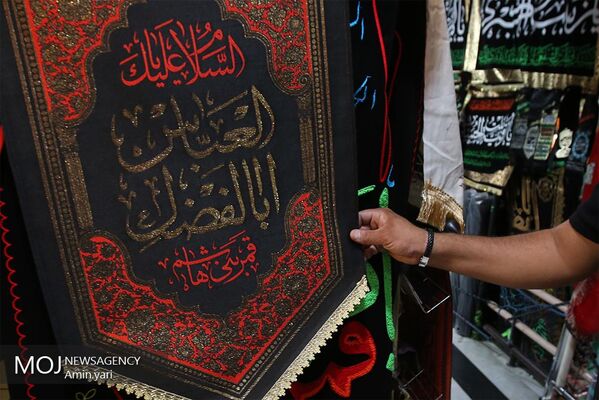 السلام علیک
العباس
ابالفضل
قمر بنی هاشم
MOJ NEWSAGENCY
Amin.yari